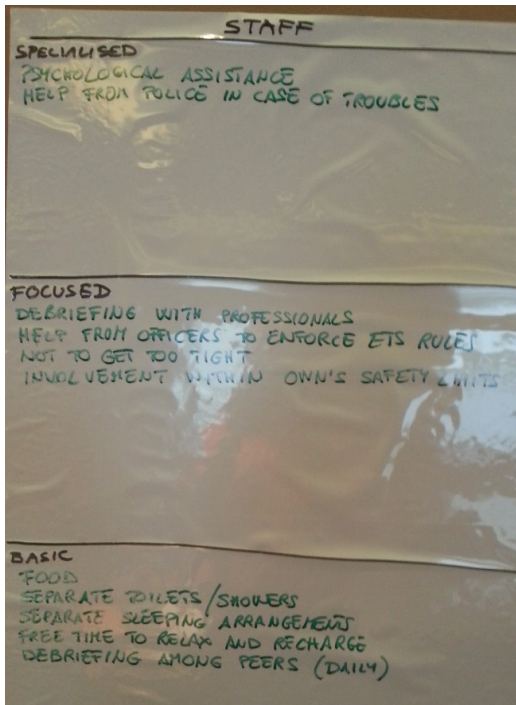 STAFF
SPECIALISED
PSYCHOLOGICAL ASSISTANCE
HELP FROM POLICE IN CASE OF TROUBLES
FOCUSED
DEBRIEFING WITH PROFESSIONALS
HELP FROM OFFICERS TO ENFORCE ETS RULES
NOT TO GET TOO TIGHT
INVOLVEMENT WITHIN OWN'S SAFETY LIMITS
BASIC
FOOD
SEPARATE TOILETS/SHOWERS
SEPARATE SLEEPING ARRANGEMENTS
FREE TIME TO RELAX AND RECHARGE
DEBRIEFING AMONG PEERS (DAILY)